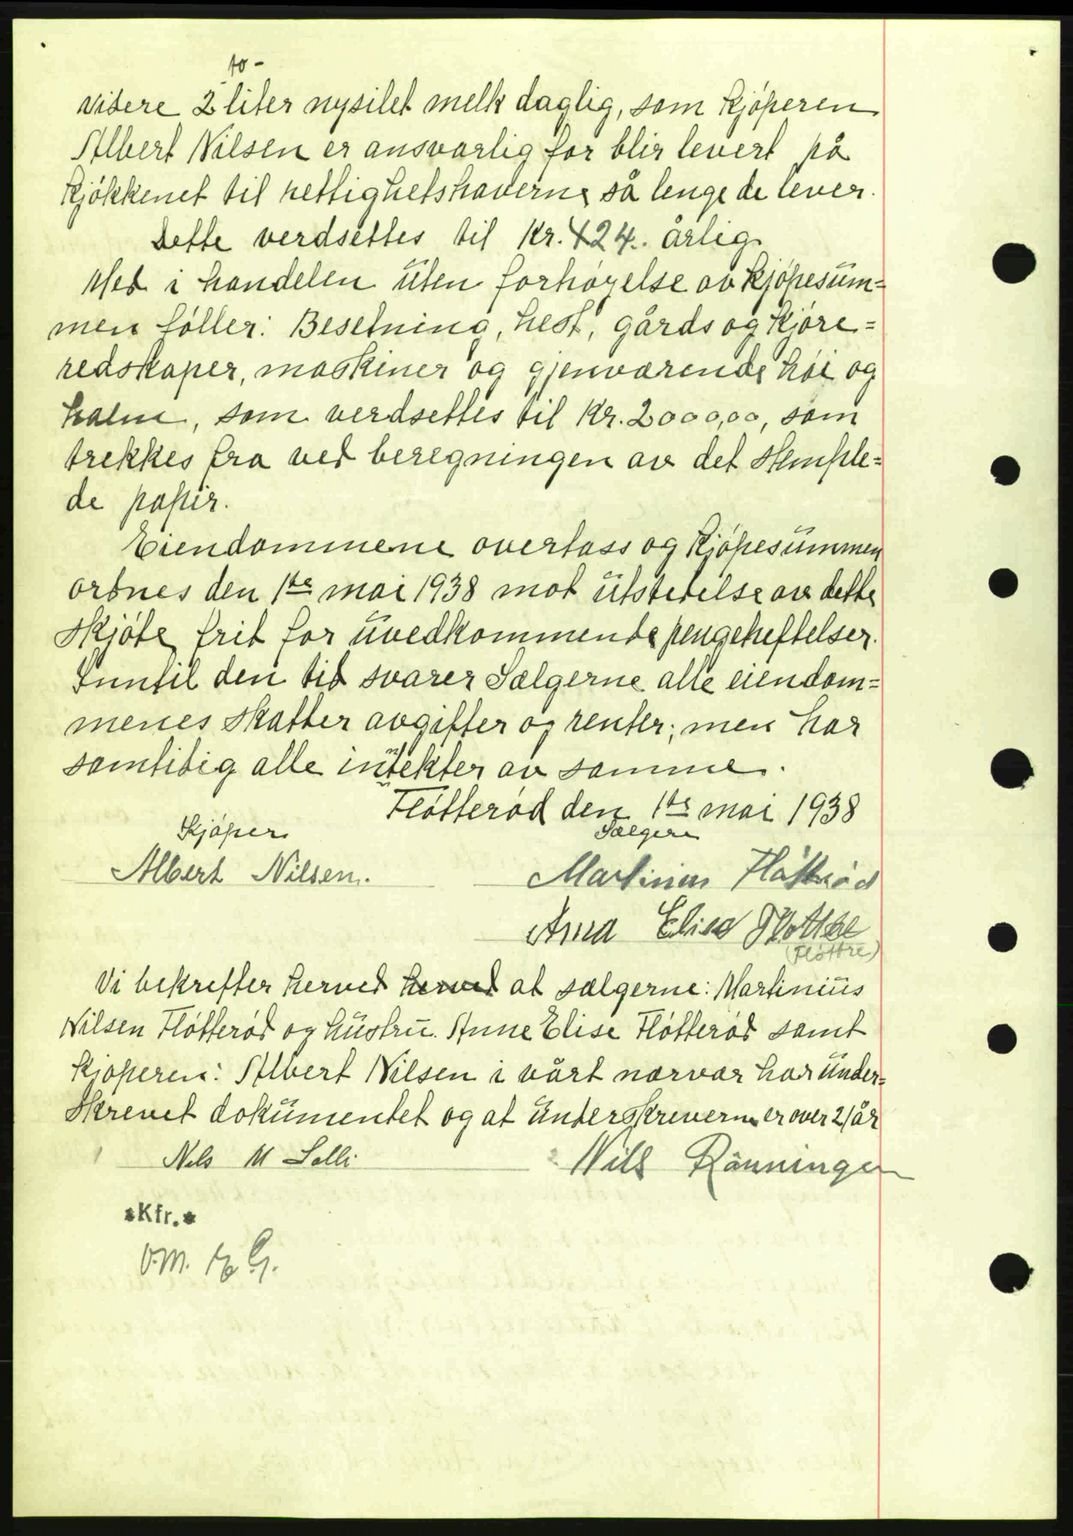 to -
videre 2 liter nysilet melk daglig, som kjøperen
Albert Nilsen er ansvarlig for blir levert på
kjøkkenet til rettighetshaverne så lenge de lever.
Dette verdsettes til Kr. 424.. årlig.
Med i handelen uten forhøyelse av kjøpesum=
men føller: Besetning, hest, gårds og kjøre=
redskaper, maskiner og gjenværende høi og
halm, som verdsettes til Kr. 2000,00, som
trekkes fra ved beregningen av det stemple=
de papir.
Eiendommene overtass og kjøpesummen
ordnes den 1ste mai 1938 mot utstedelse av dette
skjøte, frit for uvedkommende pengeheftelser.
Inntil den tid svarer Sælgerne alle eiendom=
menes skatter avgifter og renter; men har
samtidig alle inntekter av samme.
Fløtterød den 1ste mai 1938
Kjøper Sælgere
Albert Nilsen. Martinius Fløtterød
Anna Elise Fløttre
(Fløttre)
Vi bekrefter herved herved at sælgerne: Martinius
Nilsen Fløtterød og hustru Anne Elise Fløtterød samt
kjøperen: Albert Nilsen i vårt nærvær har under=
skrevet dokumentet og at underskriverne er over 21 år
Nels M Solli Nils Rønningen
*Kfr.*
O.M. EG.